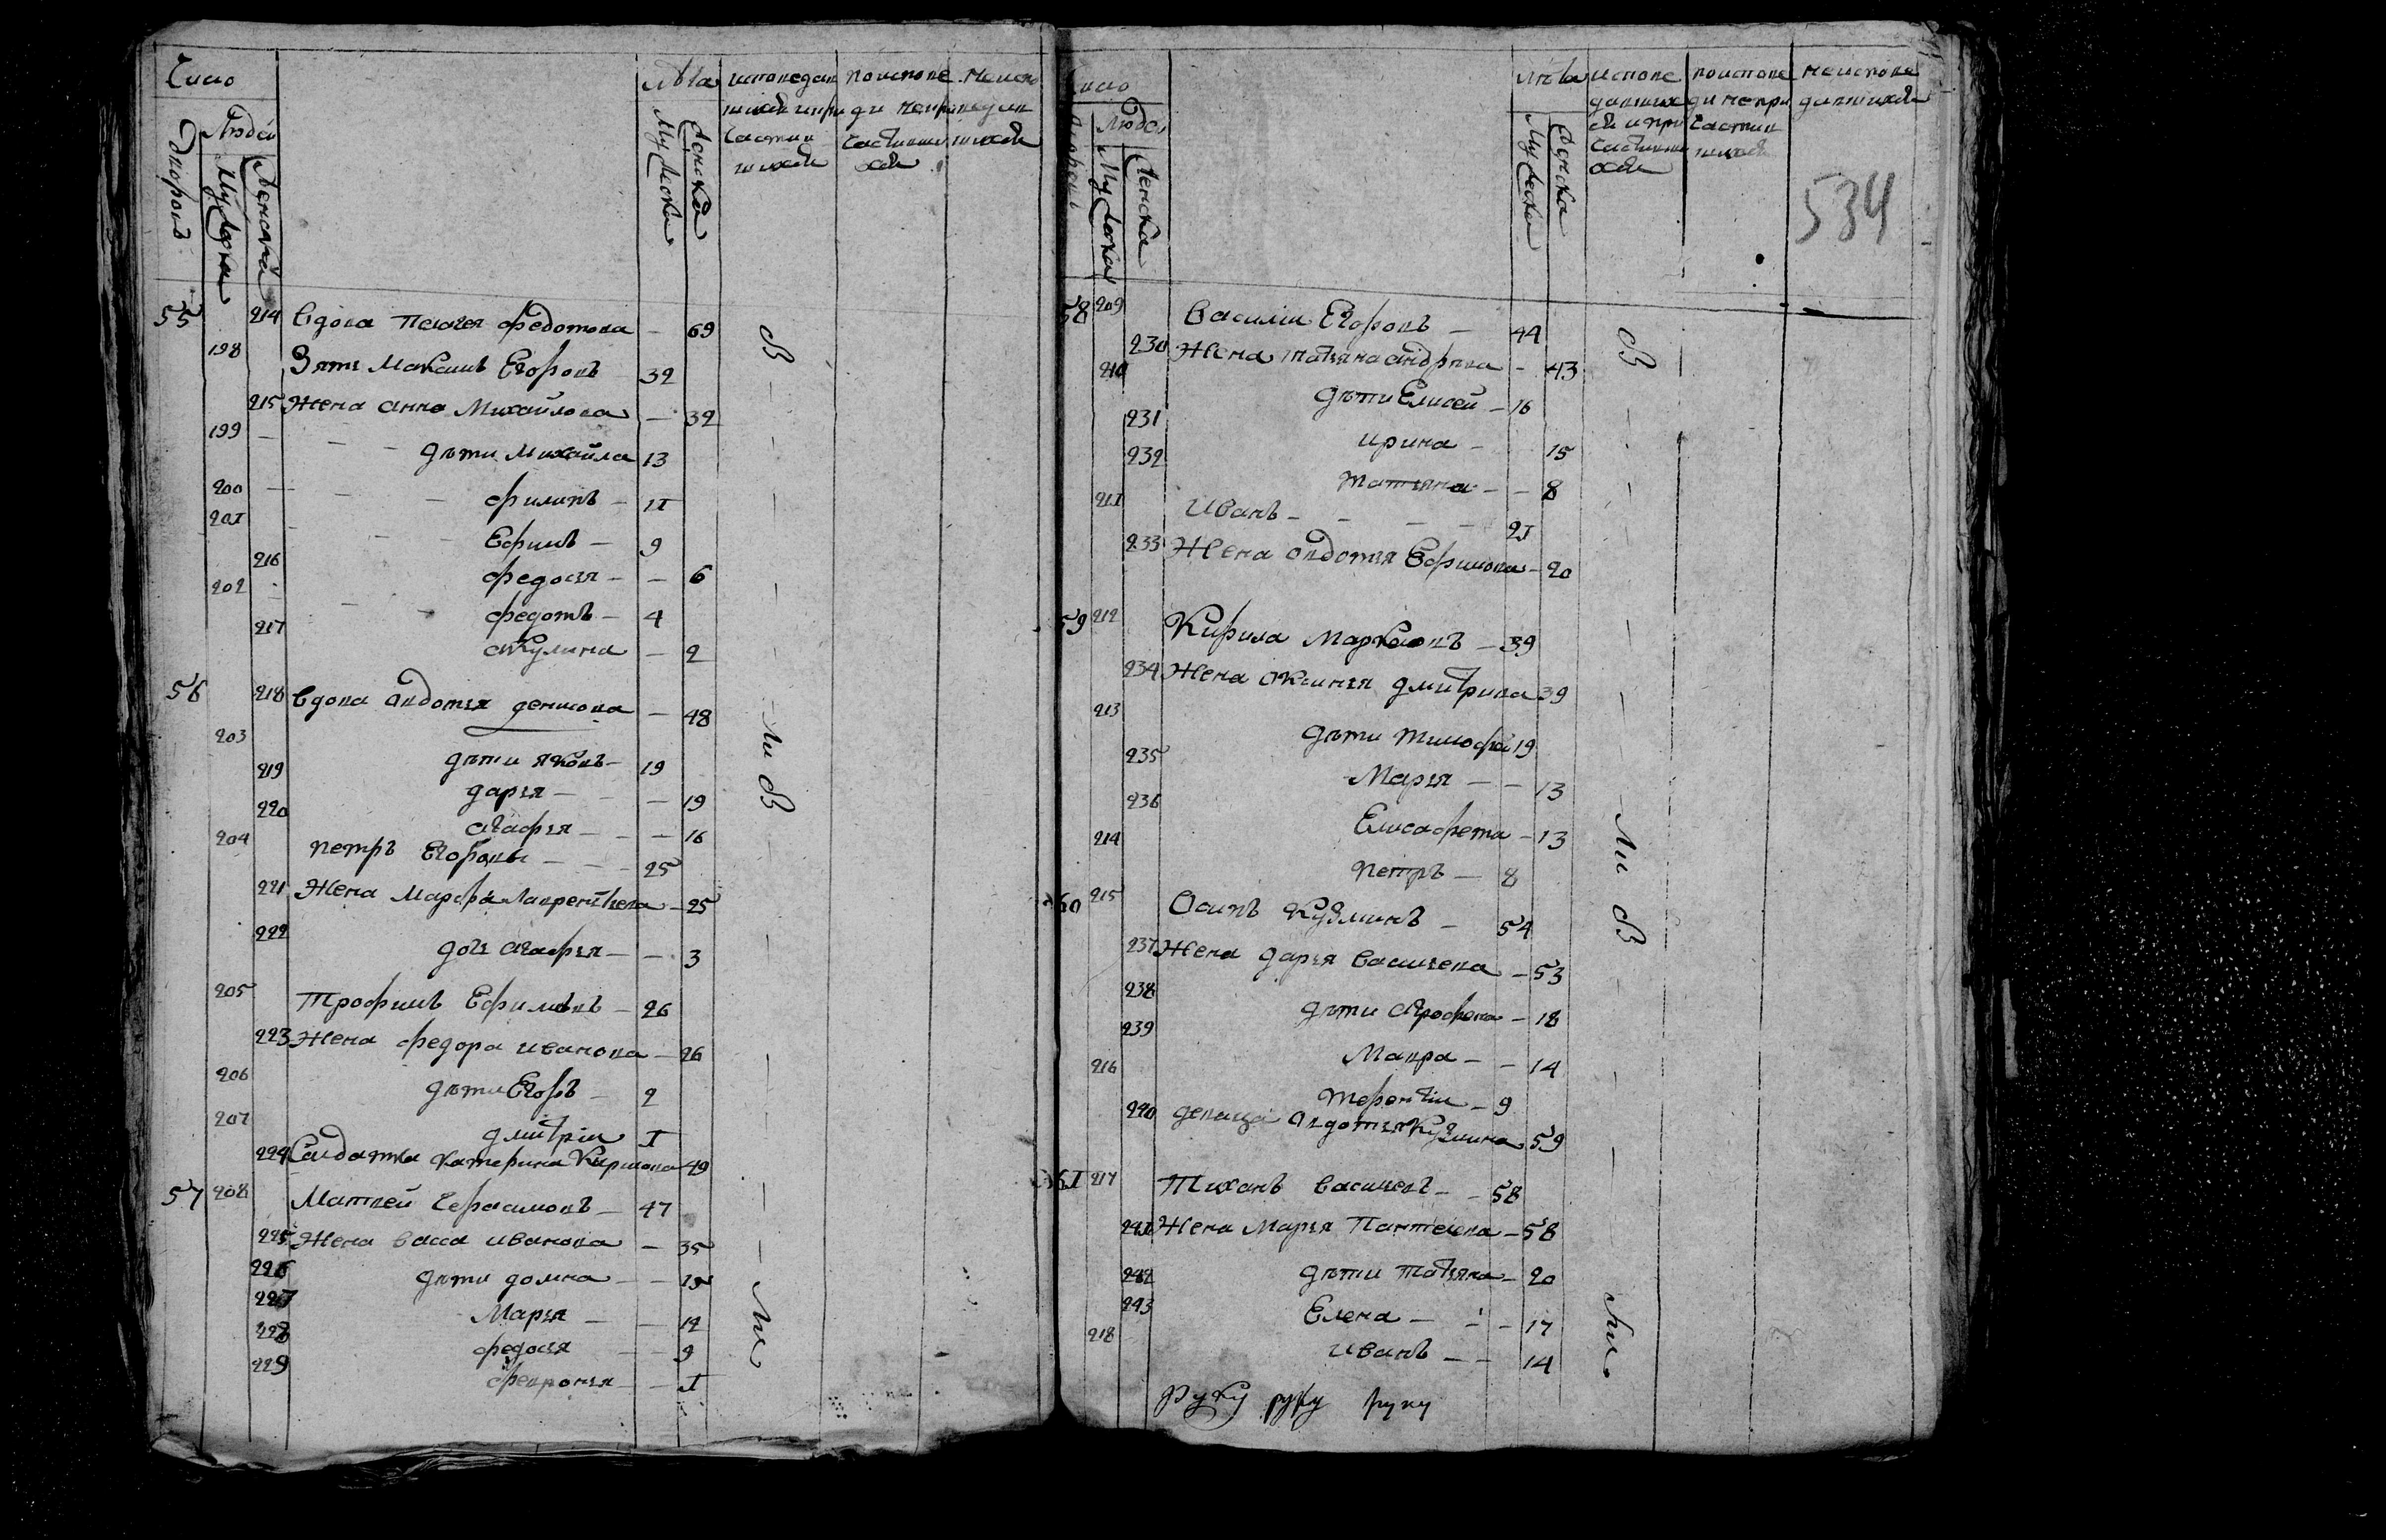 Число
Людей
дворовъ
Мужеска
Женска
Лѣта
Мужеска
Женска
55 214 Вдова Пелагея Федотова — 69
198 Зять Максимъ Егоровъ 32
215 Жена Анна Михайлова — 32
199 дѣти Михайла 13
200 Филипъ — 11
201 Ефимъ — 9
216 Федосья — — 6
202 Федотъ — 4
217 Акулина — 2
56 218 Вдова Авдотья Денисова — 48
203 дѣти Яковъ — 19
219 Дарья — — 19
220 Агафья — — 16
204 Петръ Егоровъ — — 25
221 Жена Марфа Лаврентьева — 25
222 дочь Агафья — — 3
205 Трофимъ Ефимовъ — 26
223 Жена Федора Иванова — 26
206 дѣти Егоръ — 2
207 Дмитрій 1
224 Салдатка Катерина Карпова 49
57 208 Матвей Герасимовъ — 47
225 Жена Васса Иванова — 35
226 дѣти Домна — — 15
227 Марья — — 12
228 Федосья — — 9
229 Феврония — — 1
В
Ли В
Ли
Число
Людей
дворовъ
Мужеска
Женска
Лѣта
Мужеска
Женска
534
58 209 Василій Егоровъ — 44
230 Жена Татьяна Андреева — 43
210 дѣти Елисей — 16
231 Ирина — 15
232 Татьяна — — 8
211 Иванъ — — — — 21
233 Жена Авдотья Ефимова — 20
59 212 Кирила Марковъ — 39
234 Жена Аксинья Дмитрива 39
213 дѣти Тимофей 19
235 Марья — — 13
236 Елисафета — 13
214 Петръ — 8
60 215 Осипъ Кузминъ — 54
237 Жена Дарья Васильева — 53
238 дѣти Аграфена — 18
239 Мавра — — 14
216 Терентій — 9
240 девица Авдотья Кузмина 59
61 217 Тихонъ Васильевъ — — 58
241 Жена Марья Пантелеева — 58
242 дѣти Татьяна — 20
243 Елена — — — 17
218 Иванъ — — 14
руку руку руку
В
Ли В
Ли